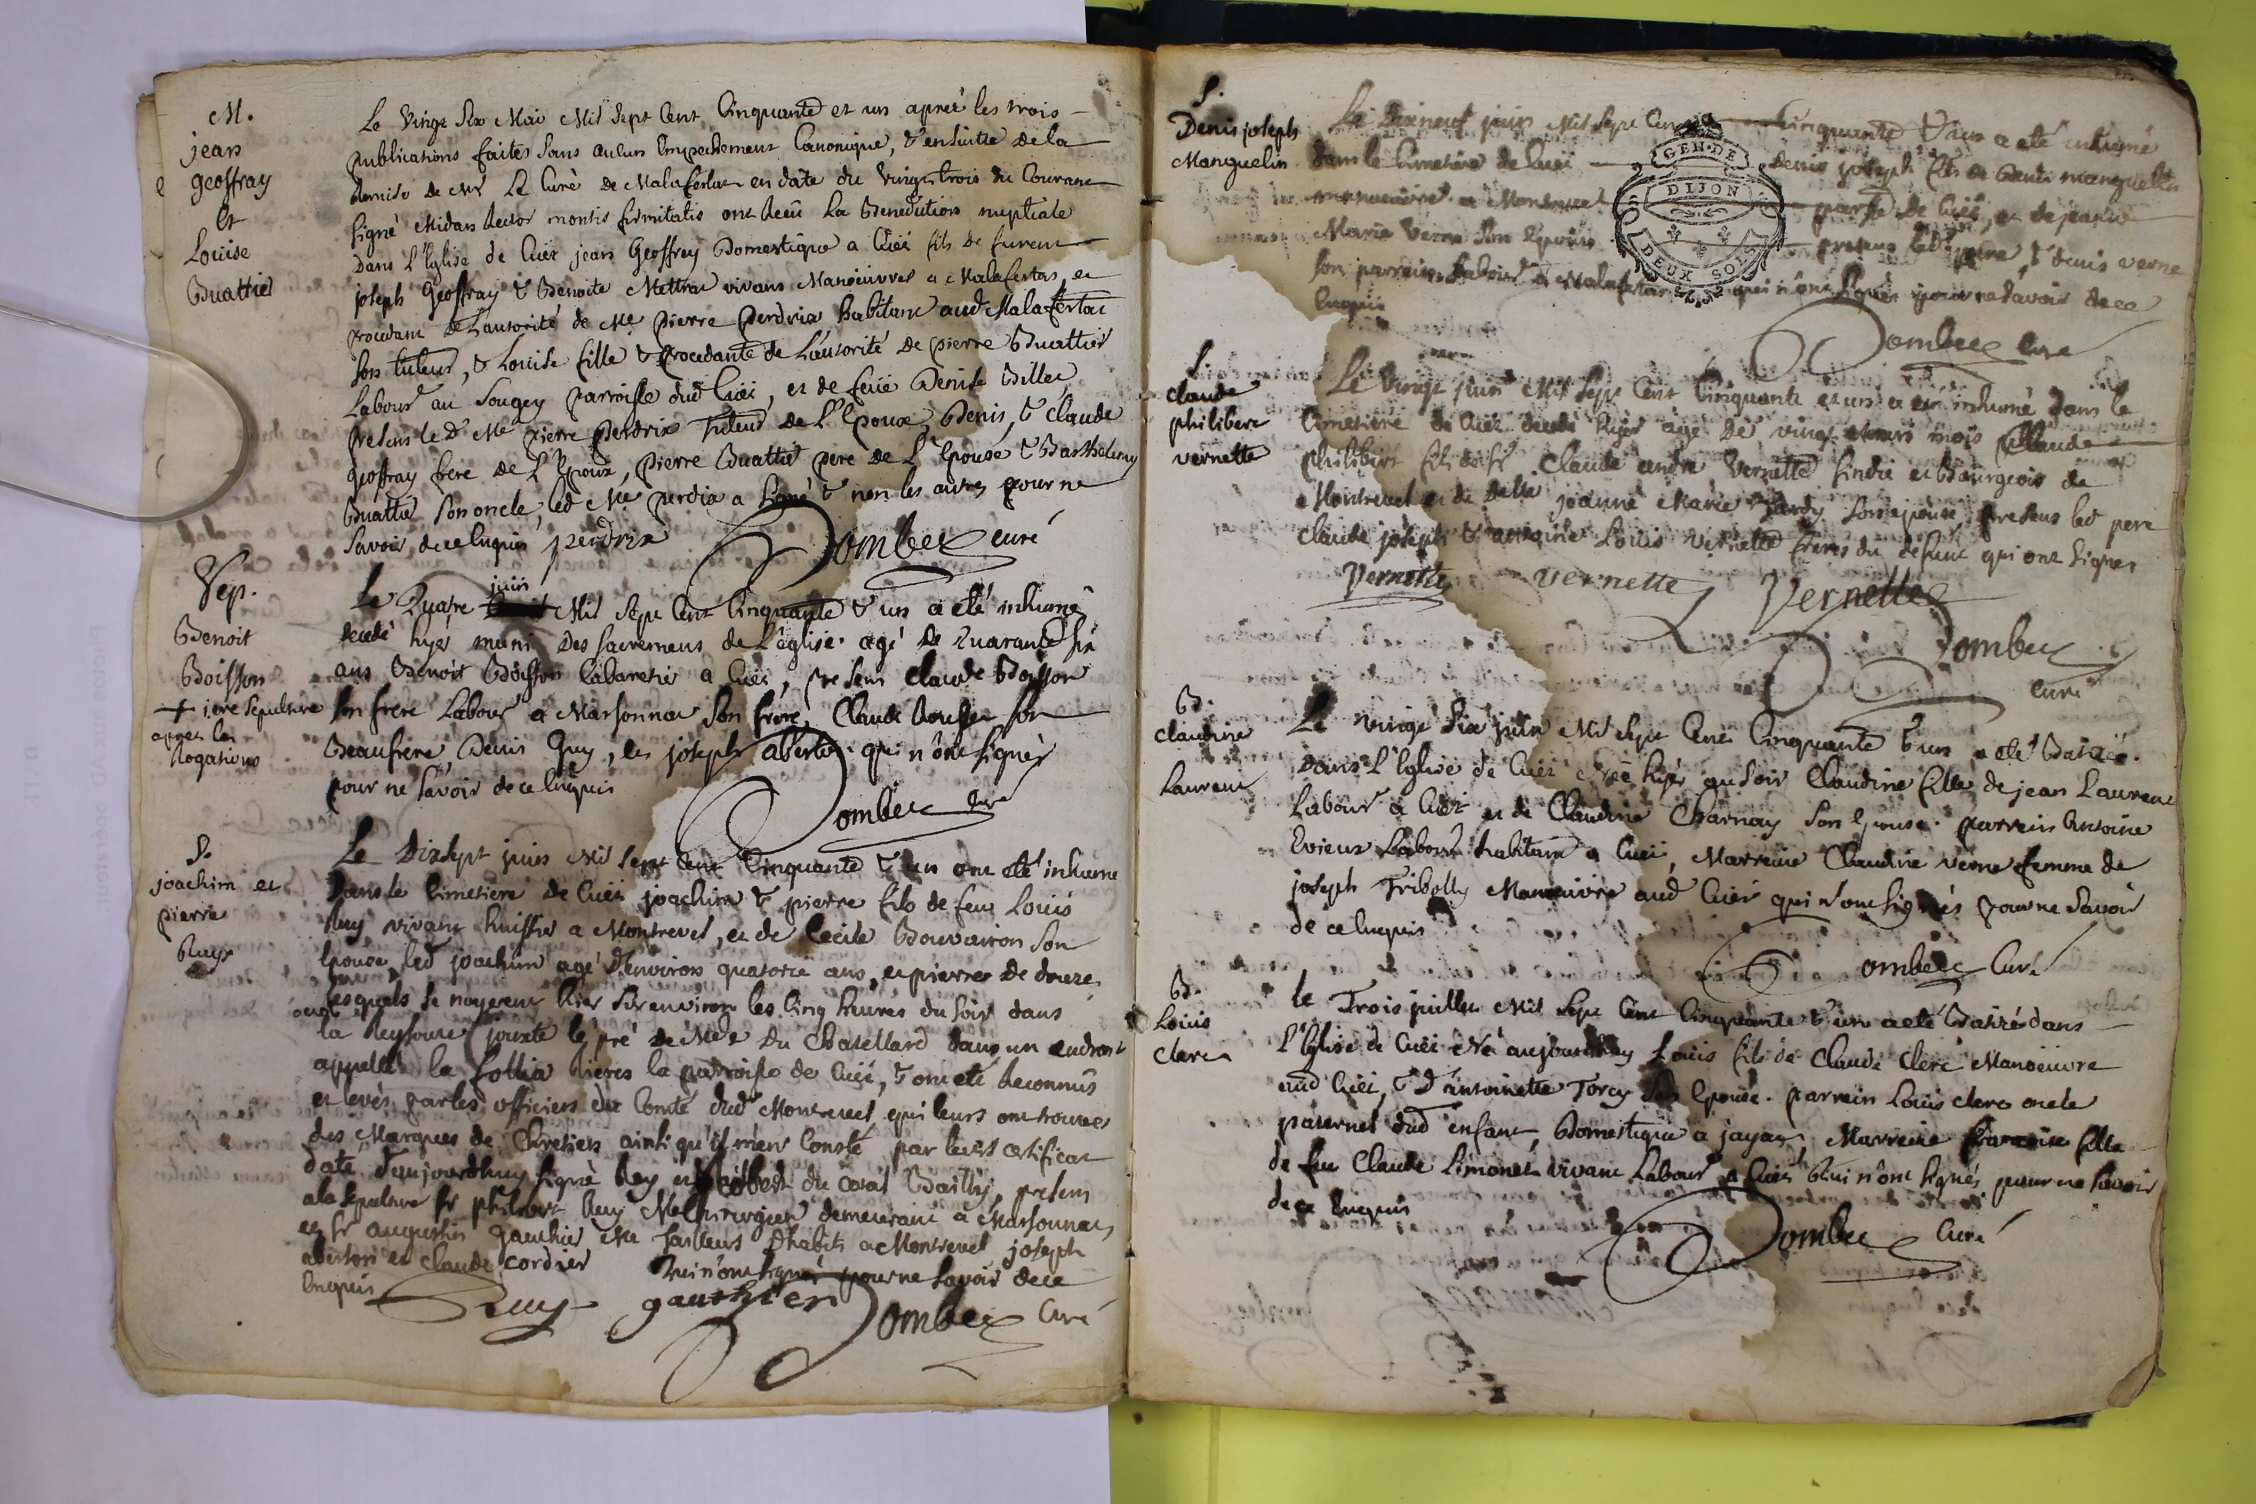 M.
jean
geoffray
et
Louise
Buattier
Le Vingt Six Mai Mil Sept Cent Cinquante et un aprez les trois
publications faites Sans aucun Empechement Canonique, & ensuitte de la
Remise de Mr Le Curé de Malafertas en date du Vingt trois du Courant
Signé Midan Rector montis firmitatis ont Receü La Benediction nuptiale
Dans L'Eglise de Cuët jean Geoffray Domestique a Cuët fils de furent
joseph Geoffray & Benoite Mettra vivans Manoeuvres a Malafertas, et
procedant de L'autorité de Me pierre perdrix habitant aud Malafertas
Son tuteur, & Louise fille & procedante de L'autorité de pierre Buattier
Labour au Sougey parroisse dud Cuët, et de feüe Denise Billet
presens le Dt Me pierre perdrix Tuteur de L'Epoux, Denis & Claude
geoffray frere de L'Epoux, pierre Buattier pere de L'Epouse & Barthelemy
Buattier Son oncle, led Me perdrix a Signé & non les autres pour ne
Savoir de ce Enquis perdrix Dombey curé
Sep.
Benoit
Boisson
+ iere Sepulture
apres les
Rogations
juin
Le Quatre Mil Sept Cent Cinquante & un a eté inhumé
decedé hyer muni Des Sacremens de L'église agé De Quarante Six
ans Benoit Boisson Cabaretier a Cuët, presens Claude Boisson
Son frere Labour a Marsonnas Son frere, Claude Son
Beaufrere Denis Guy, et joseph qui n'ont Signés
pour ne Savoir de ce Enquis
Dombey curé
S.
joachim et
pierre
Ruy
Le Dixsept juin Mil Sept Cent Cinquante & un ont eté inhumé
Dans le Cimetiere de Cuët joachim & pierre fils de feu Louis
Ruy vivant huissier a Montrevel, et de Cecile Bouvairon Son
Epouse, led joachim agé D'environ quatorze ans, et pierre De douze
Lesquels Se noyerent hier Sur environ les Cinq heures du Soir dans
la Reyssouze jouxte le pré De Du Chatellard dans un endroit
appellé la follia Rieres la parroisse de Cuët, & ont eté Reconnus
et levés par les officiers du Comté dud Montrevel, qui leurs ont trouvé
des Marques de Chretien ainsi qu'il m'en Conste par leurs certificat
date D'aujourdhuy Signé Rey et du Bailly, presens
a la Sepulture Sr philibert Ruy Me Chirurgien demeurant a Marsonnas
et Sr augustin Gauthier Me Tailleurs D'habits a Montrevel joseph
et Claude Cordier qui n'ont Signés pour ne Savoir de ce
Enquis Ruy gauthier Dombey Curé
S.
Denis joseph
Manguelin
Le Dixneuf juin Mil Sept Cent Cinquante & un a eté inhumé
dans le Cimetiere de Cuët Denis joseph fils de Denis manguelin
manoeuvre a Montrevel parse de Cuët, et de
Marie Verne Son Epouse presens led pere & denis verne
Son parrein Labour a Malafertas qui n'ont Signés pour ne Savoir de ce
Enquis
Dombey Curé
GEN·DE
DIJON
DEUX SOLS
S.
Claude
philibert
vernette
Le Vingt juin Mil Sept Cent Cinquante et un a eté inhumé dans le
Cimetiere de Cuët decedé hyer agé De vingt mois Claude
philibert fils de Sr Claude andre Vernette Sindic et Bourgeois de
Montrevel et de Delle joanne Marie Son epouse presens led pere
Claude joseph & antoine Louis Vernette freres du defunt qui ont Signés
Vernette vernette Vernette
Dombey
Curé
B.
Claudine
Laurent
Le vingt Six juin Mil Sept Cent Cinquante & un a eté Batizée
Dans L'Eglise de Cuët Née hyer au Soir Claudine fille de jean Laurent
Labour a Cuët et de Claudine Charnay Son Epouse. parrein Antoine
Evieux Labour habitant a Cuët, Marreine Claudine verne femme de
joseph Tribolly Manoeuvre aud Cuët qui n'ont Signés pour ne Savoir
de ce Enquis
Dombey Curé
B.
Louis
Clerc
le Trois juillet Mil Sept Cent Cinquante & un a eté Batizé dans
L'Eglise de Cuët Né aujourdhuy Louis fils de Claude Clerc Manoeuvre
aud Cuët, & D'antoinette Torcy Son Epouse. parrein Louis Clerc oncle
paternel dud enfant, Domestique a jayat, Marreine francoise fille
de feu Claude Limonet vivant Labour a Cuët Qui n'ont Signés pour ne Savoir
de ce Enquis
Dombey Curé